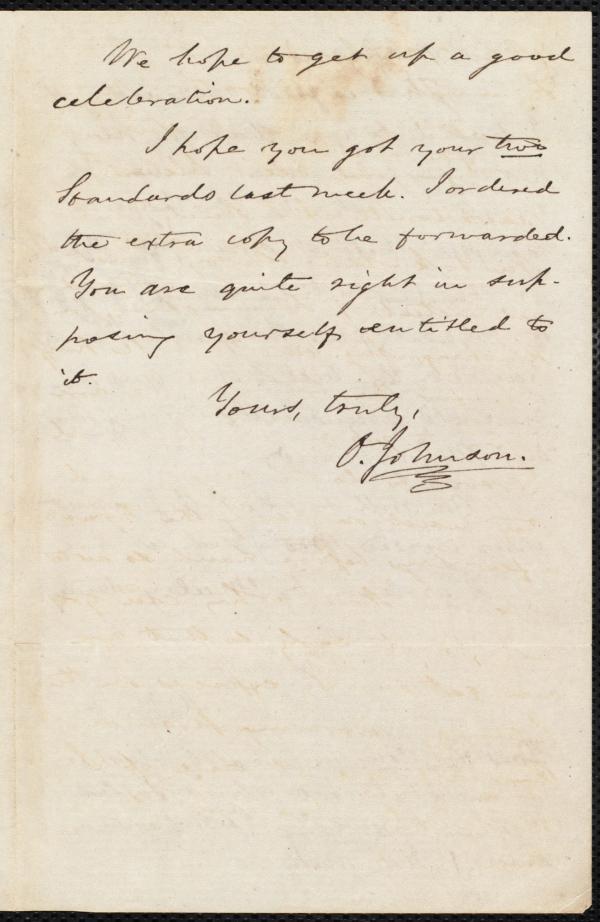 We hope to get up a good
celebration.
I hope you got your two
Standards last week. I ordered
the extra copy to be forwarded.
You are quite right in sup-
posing yourself entitled to
it.
Yours, truly,
O. Johnson.